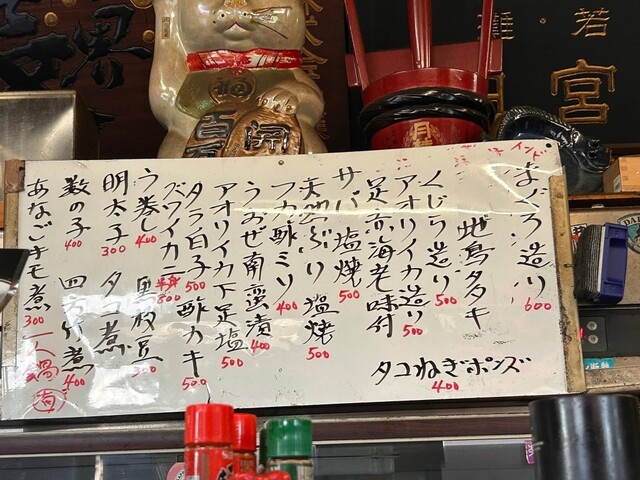 インド
まぐろ造り 600
地鳥タタキ
くじら造り 500
アオリイカ造り 500
足赤海老味付
サバ塩焼 500
天然ぶり塩焼 500
フカ酢ミソ 400
うおぜ南蛮漬 400
アオリイカ下足塩 500
タラ白子 500
酢カキ 500
ズワイカニ 800
う巻し 400
黒枝豆
明太子 300
タコ煮
数の子 400
四方竹煮 400
あなごキモ煮 300
一人鍋(有)
タコねぎポンズ 400
若
宮
開
百万